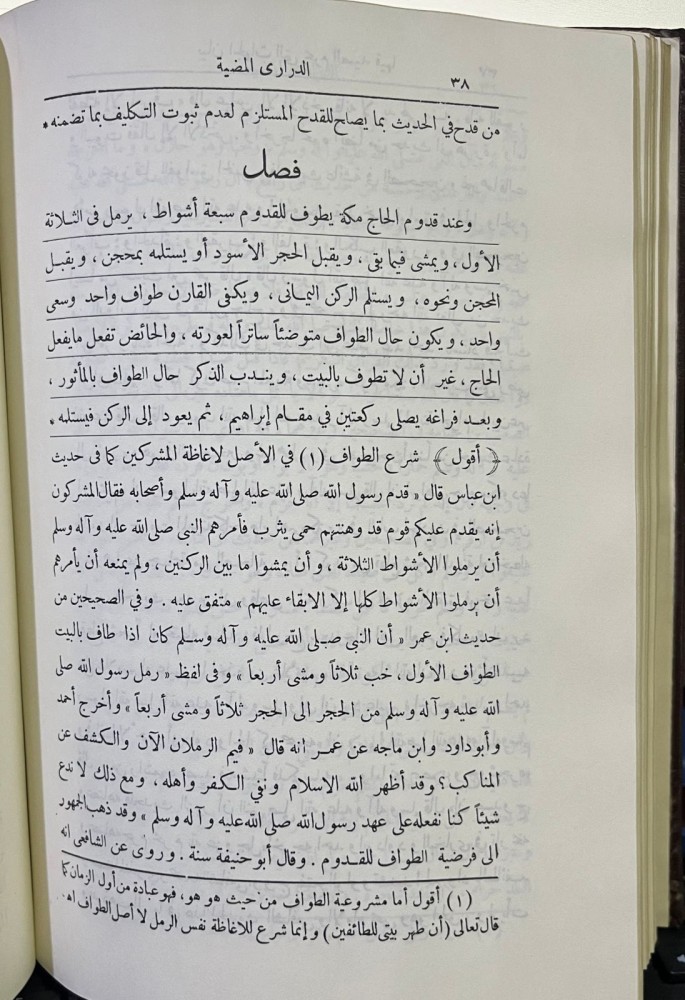 ٣٨ الدرارى المضية
من قدح في الحديث بما يصلح للقدح المستلزم لعدم ثبوت التكليف بما تضمنه *
فصل
وعند قدوم الحاج مكة يطوف للقدوم سبعة أشواط ، يرمل فى الثلاثة
الأول ، ويمشى فيما بقى ، ويقبل الحجر الأسود أو يستلمه بمحجن ، ويقبل
المحجن ونحوه ، ويستلم الركن اليمانى ، ويكفى القارن طواف واحد وسعى
واحد ، ويكون حال الطواف متوضئاً ساتراً لعورته ، والحائض تفعل مايفعل
الحاج ، غير أن لا تطوف بالبيت ، ويندب الذكر حال الطواف بالمأثور ،
وبعد فراغه يصلى ركعتين في مقام إبراهيم ، ثم يعود إلى الركن فيستلمه *
﴿ أقول ﴾ شرع الطواف (١) في الأصل لاغاظة المشركين كما فى حديث
ابن عباس قال « قدم رسول الله صلى الله عليه وآله وسلم وأصحابه فقال المشركون
إنه يقدم عليكم قوم قد وهنتهم حمى يثرب فأمرهم النبى صلى الله عليه وآله وسلم
أن يرملوا الأشواط الثلاثة ، وأن يمشوا ما بين الركنين ، ولم يمنعه أن يأمرهم
أن يرملوا الأشواط كلها إلا الابقاء عليهم » متفق عليه . وفي الصحيحين من
حديث ابن عمر « أن النبى صلى الله عليه وآله وسلم كان اذا طاف بالبيت
الطواف الأول ، خب ثلاثاً ومشى أربعاً » وفى لفظ « رمل رسول الله صلى
الله عليه وآله وسلم من الحجر الى الحجر ثلاثاً ومشى أربعاً » وأخرج أحمد
وأبوداود وابن ماجه عن عمر انه قال « فيم الرملان الآن والكشف عن
المناكب ؟ وقد أظهر الله الاسلام ونفي الكفر وأهله ، ومع ذلك لا ندع
شيئاً كنا نفعله على عهد رسول الله صلى الله عليه وآله وسلم » وقد ذهب الجمهور
الى فرضية الطواف للقدوم . وقال أبو حنيفة سنة . وروى عن الشافعى انه
(١) أقول أما مشروعية الطواف من حيث هو هو ، فهو عبادة من أول الزمان كما
قال تعالى (أن طهر بيتى للطائفين) وإنما شرع للاغاظة نفس الرمل لا أصل الطواف اه .